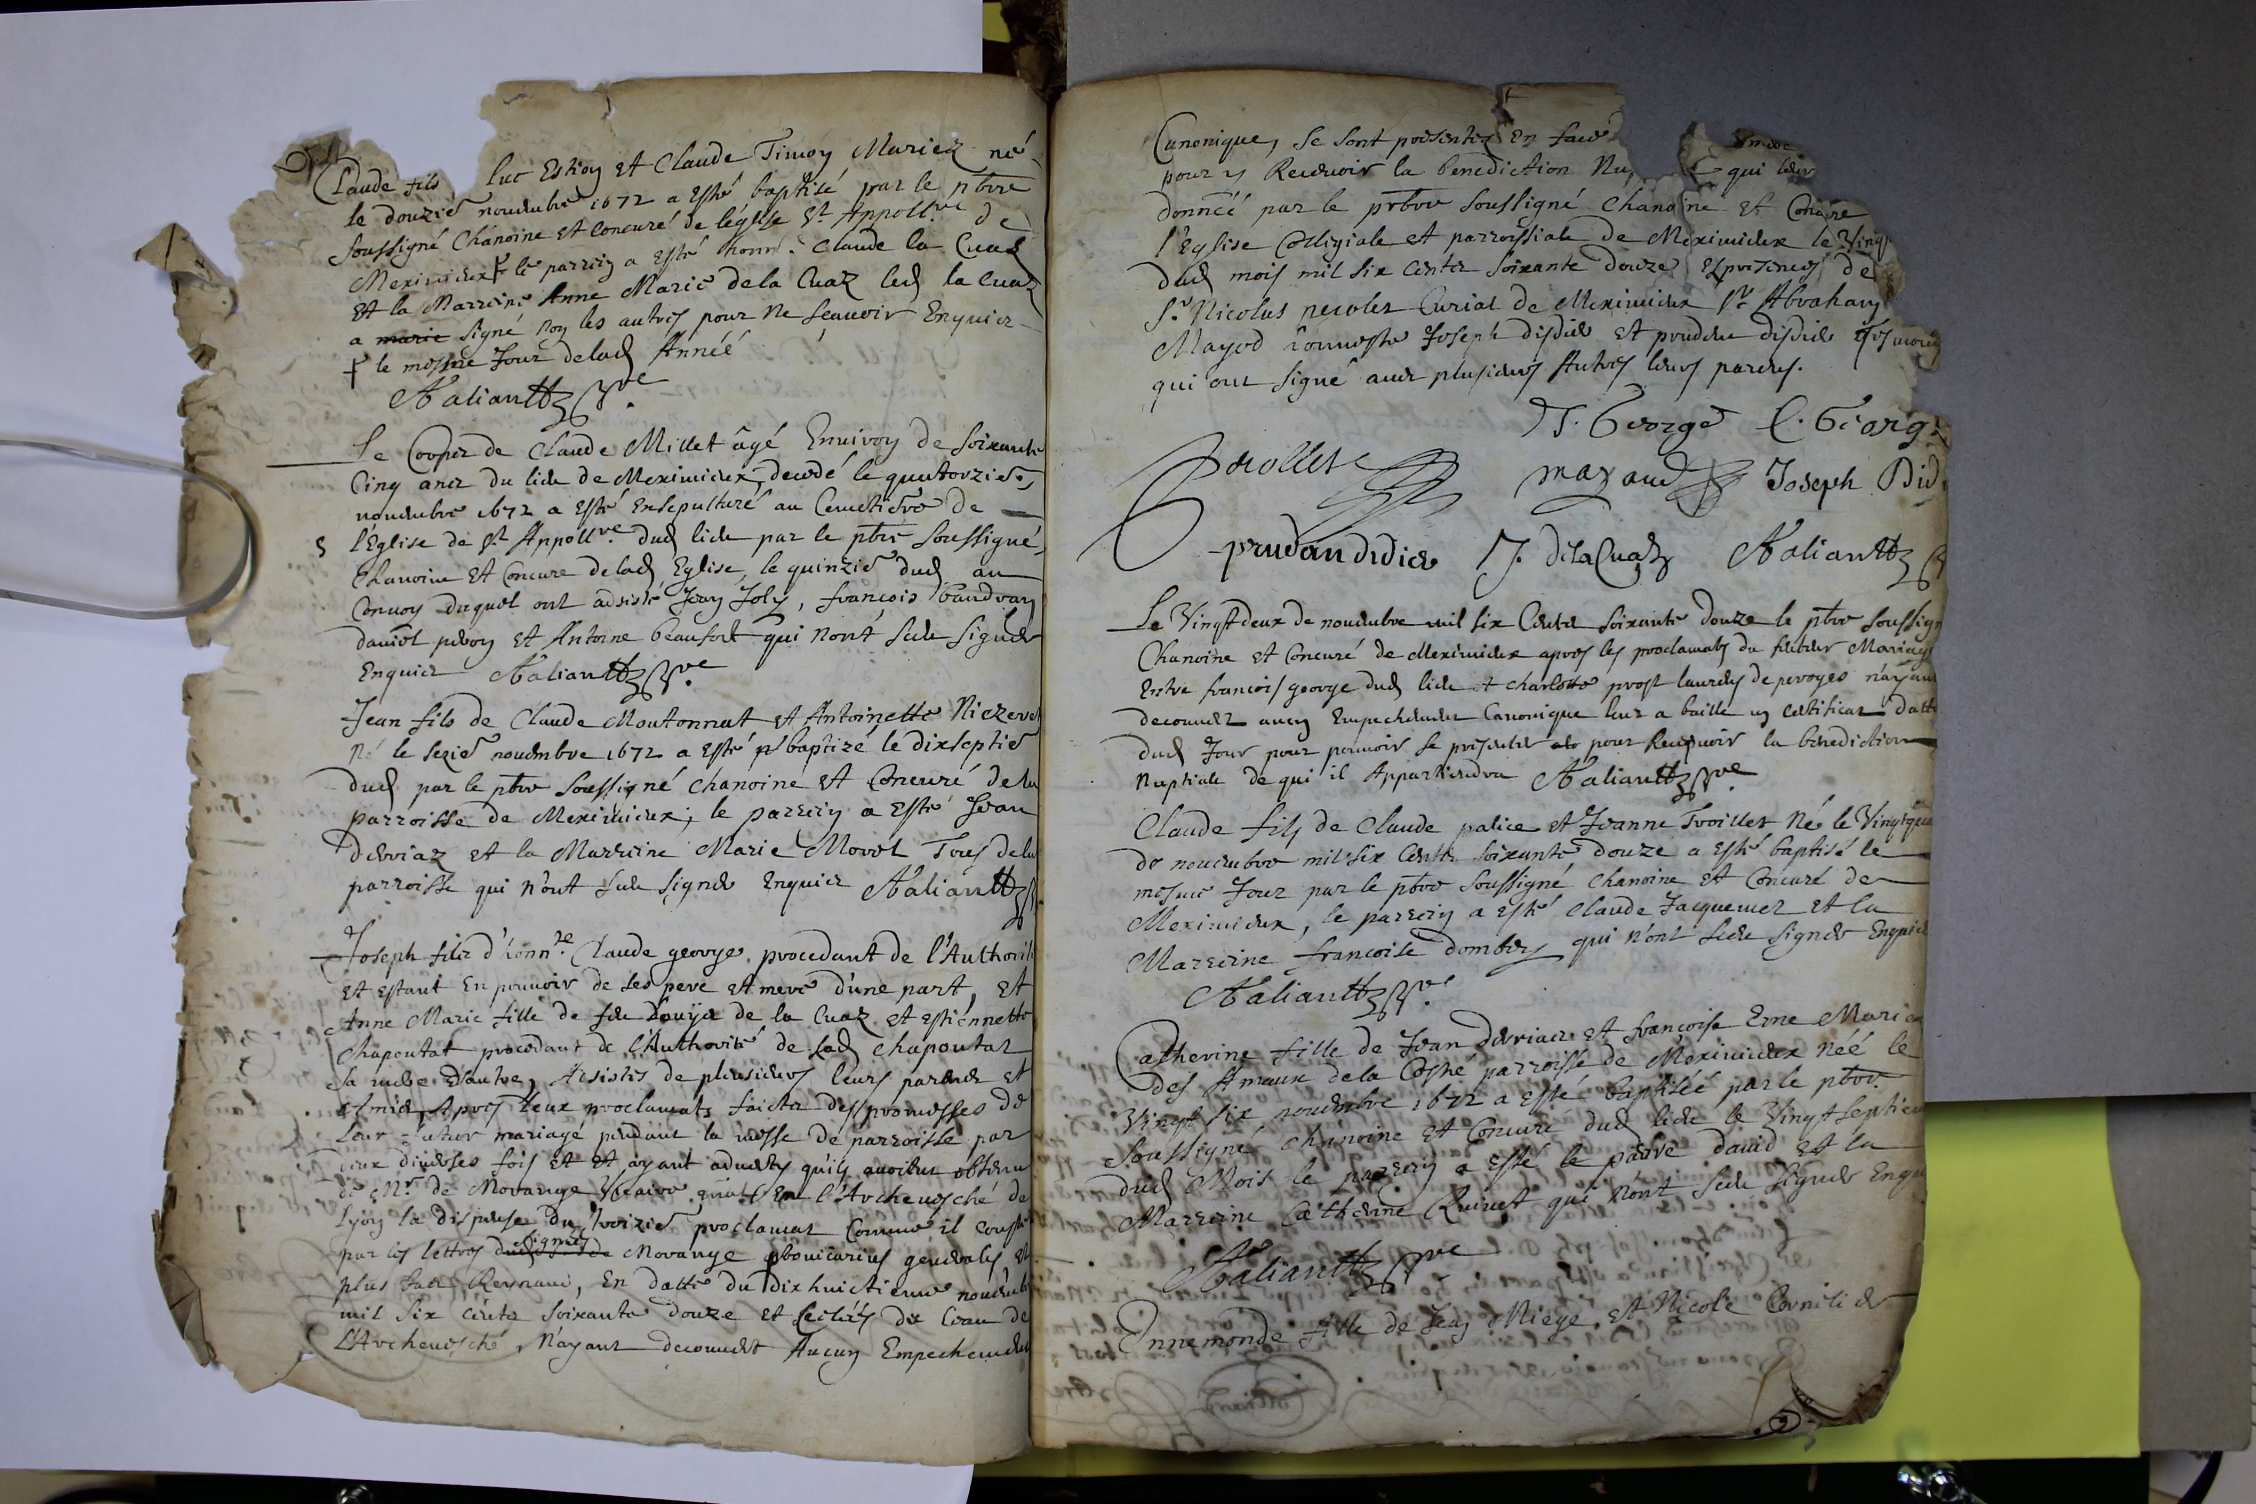 Claude fils Luc Estion et Claude Timon Mariez né
le douzie novembre 1672 a esté baptisé par le pbre
soussigné Chanoine et Concuré de l'église St Appollre de
Meximieux le parrein a esté honn. Claude la Cuaz
et la Marreine Anne Marie de la Cuaz led la Cuaz
a marie signé non les autres pour ne scauoir Enquiez
le mesme Jour delad Année
Aaliantz
Le Corps de Claude Millet âgé Enuiron de soixante
Cinq ans du lieu de Meximieux, decedé le quatorzie
nouembre 1672 a esté Ensepulturé au Cemetiere de
l'Eglise de St Appollre dud lieu par le pbre soussigné
Chanoine et Concure delad Eglise, le quinzie dud au
Conuoy duquel ont adsisté Jean Joly, françois
et Antoine beaufort qui n'ont sceu signer
Enquiez Aaliantz
Jean fils de Claude Moutonnat et Antoinette
Né le sezie nouembre 1672 a esté baptizé le dixseptie
dud par le pbre soussigné chanoine et Concuré de la
parroisse de Meximieux, le parrein a esté Jean
derriaz et la Marreine Marie Morel Tous de la
parroisse qui n'ont sceu signer enquiez Aaliantz
Joseph filz d'honnle Claude george procedant de l'Authorité
et estant En pouuoir de ses pere et mere d'une part, et
Anne Marie fille de feu de la Cuaz et estiennette
Chapoutat procedant de l'Authorité de lad Chapoutat
sa mere d'autre, Assistés de plusieurs leurs parens et
Amis, Apres deux proclamats faictes des promesses de
leur futur mariage pendant la messe de parroisse par
deux diuerses fois et et ayant aduerty qu'ils auoient obtenu
de Mr de Morange Vicaire gnal En l'Archeuesché de
Lyon la dispense du troizie proclamat Comme il conste
par les lettres signées Morange vicarius generalis et
plus bas Reynaud, En datte du dixhuictieme nouembre
mil six cents soixante douze et scelées du sceau de
l'Archeuesché, N'ayant decouuert Aucun Empechement
Canonique, se sont presentez en face
pour y Receuoir la benediction Nu qui leur
donnéé par le prbre soussigné Chanoine et Concure
l'Eglise Collegiale et parroissiale de Meximieux le Vingt
dud mois mil six Cents soixante douze Es presences de
Sr Nicolas perolet Curial de Meximieux Sr Abraham
Mayod honneste Joseph disdier et prudent disdier tesmoins
qui ont signé auec plusieurs Autres leurs parens.
J. George C. Georg
Perollet mayaud Joseph Did
prudan didier J. delaCuaz Aaliantz
Le Vingtdeux de nouembre mil six Cents soixante douze le pbre soussign
Chanoine et Concuré de Meximieux apres les proclamats du futur Mariage
Entre françois george dud lieu et charlotte prost de peroges n'ayant
decouuert aucun Empechement Canonique leur a baillé un Certificat datté
dud Jour pour pouuoir se presenter pour Receuoir la benediction
Nuptiale de qui il Appartiendra Aaliantz
Claude filz de Claude palice et Jeanne Troillet Né le Vingt
de nouembre mil six Cents soixante douze a esté baptisé le
mesme Jour par le pbre soussigné Chanoine et Concuré de
Meximieux, le parrein a esté Claude Jacquemet et la
Marreine françoise dombey qui n'ont sceu signer Enquiez
Aaliantz
Catherine fille de Jean derriaz et françoise Eme Mariez
des Amaux de la Costé parroisse de Meximieux Néé le
Vingt six nouembre 1672 a esté baptiséé par le pbre
soussigné chanoine et Concuré dud lieu le Vingt septieme
dud Mois le parrein a esté le pauvre dauid et la
Marreine Catherine Quinet qui n'ont sceu signer Enqu
Aaliantz
Ennemonde fille de Jean Miege et Nicole Cornilier